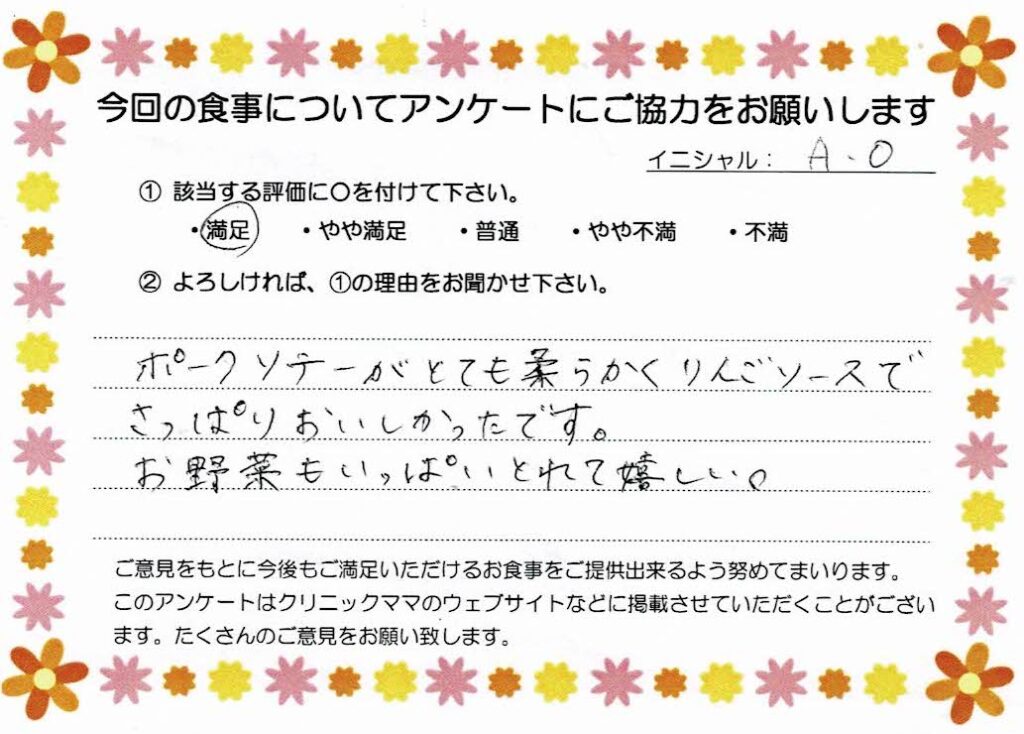 今回の食事についてアンケートにご協力をお願いします
イニシャル： A.O
① 該当する評価に○を付けて下さい。
・満足 ・やや満足 ・普通 ・やや不満 ・不満
② よろしければ、①の理由をお聞かせ下さい。
ポークソテーがとても柔らかくりんごソースで
さっぱりおいしかったです。
お野菜もいっぱいとれて嬉しい。
ご意見をもとに今後もご満足いただけるお食事をご提供出来るよう努めてまいります。
このアンケートはクリニックママのウェブサイトなどに掲載させていただくことがござい
ます。たくさんのご意見をお願い致します。